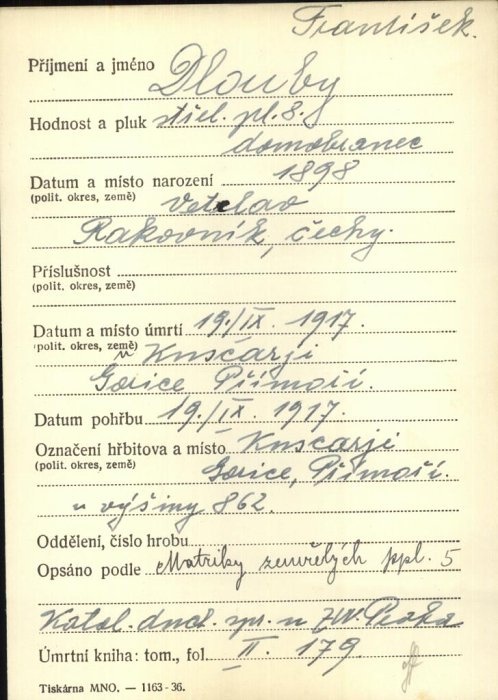 František.
Příjmení a jméno Dlouhy
Hodnost a pluk střel. pl. 8.
domobranec
Datum a místo narození 1898
(polit. okres, země) Vetclav
Rakovník, čechy.
Příslušnost
(polit. okres, země)
Datum a místo úmrtí 19./IX. 1917.
(polit. okres, země) u Kuščarji
Gorice Přímoří.
Datum pohřbu 19./IX. 1917.
Označení hřbitova a místo Kuscarji
(polit. okres, země) Gorice, Přímoří.
u výšiny 862.
Oddělení, číslo hrobu
Opsáno podle Matriky zemřelých ppl. 5
Katol. duch. spr. u ZVV. Praha
Úmrtní kniha: tom., fol. II. 179
Tiskárna MNO. — 1163-36.